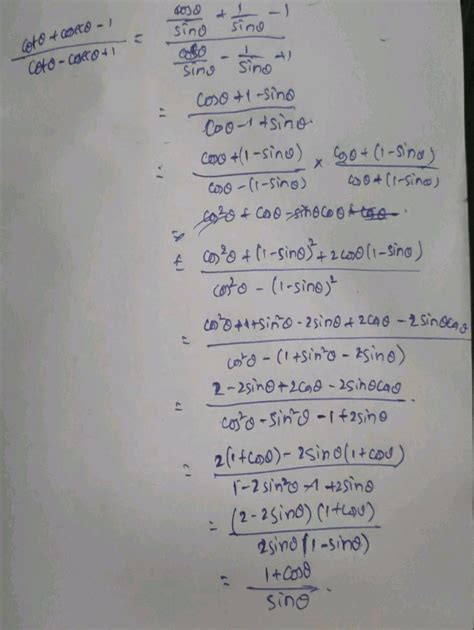 cotθ + cosecθ - 1 / cotθ - cosecθ + 1 = cosθ/sinθ + 1/sinθ - 1 / cosθ/sinθ - 1/sinθ + 1
= cosθ + 1 - sinθ / cosθ - 1 + sinθ.
= cosθ + (1 - sinθ) / cosθ - (1 - sinθ) × cosθ + (1 - sinθ) / cosθ + (1 - sinθ)
= cos²θ + cosθ - sinθ cosθ + cosθ
= cos²θ + (1 - sinθ)² + 2cosθ(1 - sinθ) / cos²θ - (1 - sinθ)²
= cos²θ + 1 + sin²θ - 2sinθ + 2cosθ - 2sinθcosθ / cos²θ - (1 + sin²θ - 2sinθ)
= 2 - 2sinθ + 2cosθ - 2sinθcosθ / cos²θ - sin²θ - 1 + 2sinθ.
= 2(1 + cosθ) - 2sinθ(1 + cosθ) / 1 - 2sin²θ - 1 + 2sinθ
= (2 - 2sinθ)(1 + cosθ) / 2sinθ(1 - sinθ)
= 1 + cosθ / sinθ.